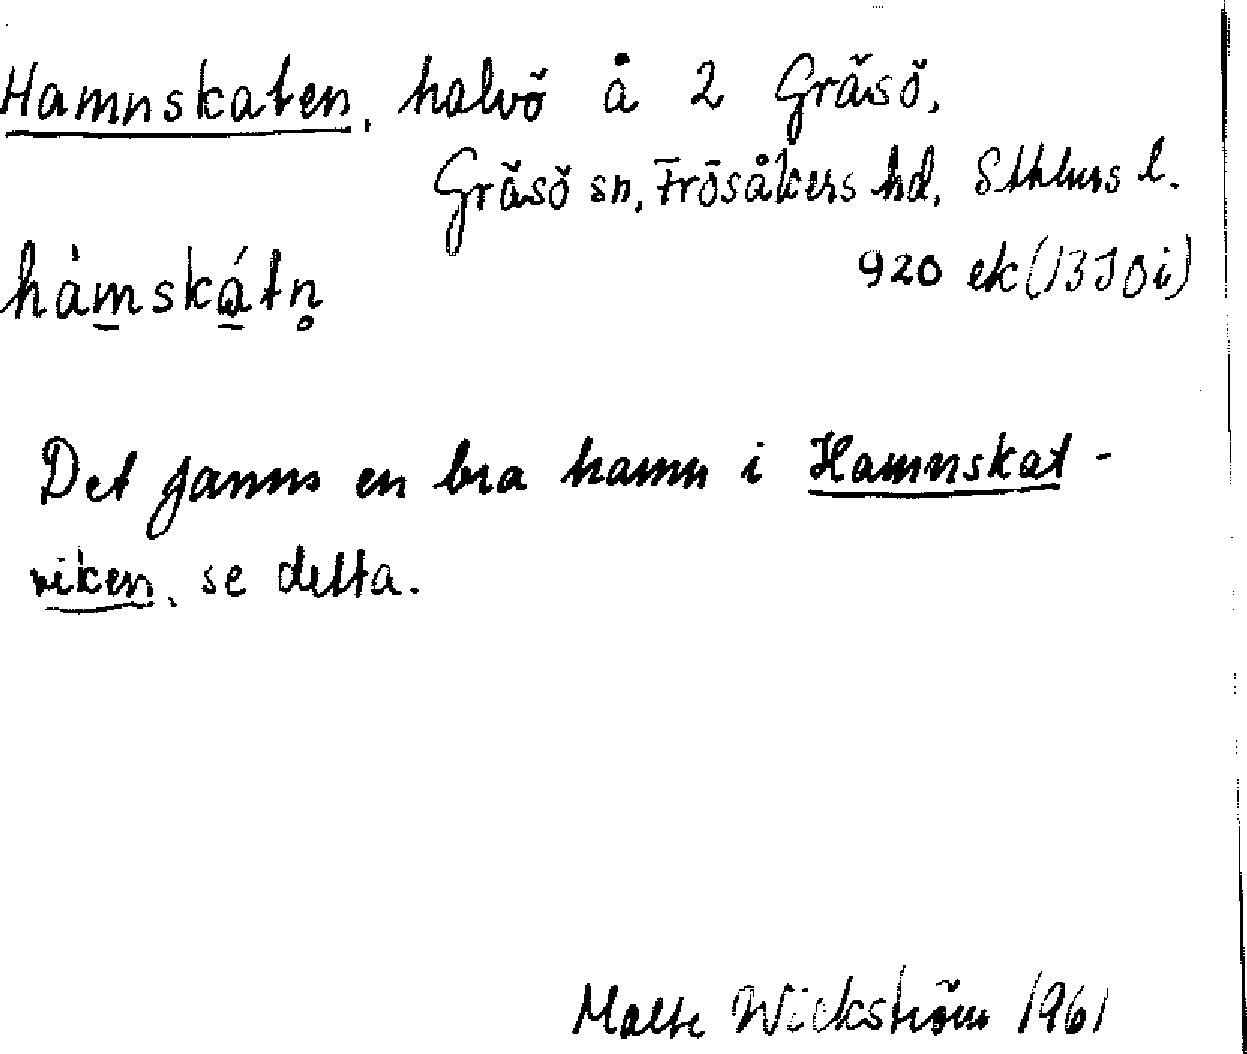 Hamnskaten, halvö å 2 Gräsö,
Gräsö sn, Frösåkers hd, Sthlms l.
920 ek (13J0i)
hàmskátn̥
Det fanns en bra hamn i Hamnskat-
viken, se detta.
Malte Wickström 1961